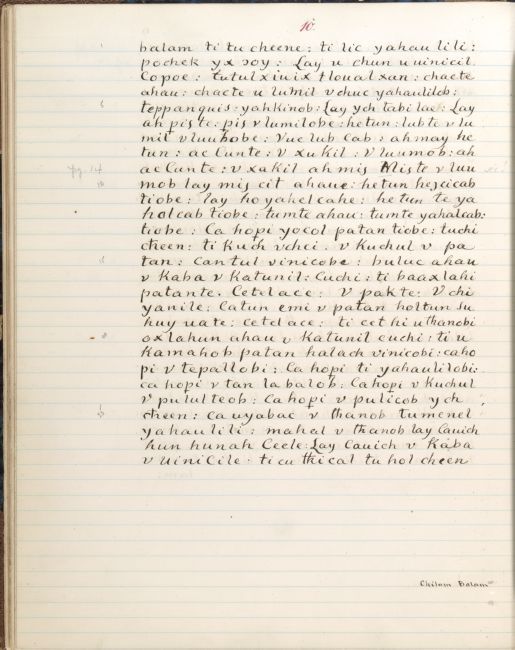 10.
balam ti tu cheene: ti lic yahaulili:
pochek yx ɔoy: Lay u chun u uinicil
Copoe: tutul xiuix tloual xan: chacte
ahau: chacte u lumil v chuc yahaulilob:
5 teppanquis: yahkinob: Lay ych tabi lae: Lay
ah piste: pis v lumilobe: he tun: lub te v lu
mil v luubobe: Vuc lub cab: ah may he
tun: ac Cunte: v xukil: v luumob: ah
pg. 14 ac Cunte: v xukil ah mis Miste v luu
10 mob lay mis cit ahaue: he tun hejcicab
tiobe: lay ho yahel cahe: he tun te ya
hol cab tiobe: tumte ahau: tumte yahalcab:
tiobe: Ca hopi yocol patan tiobe: tuchi
cheen: ti Kuch v chci: v Kuchul v pa
tan: can tul vinicobe: buluc ahau
v Kaba v Katunil: Cuchi: ti baaxlahi
patante. Cetelace: V pakte: V chi
yanile: Catun emi v patan holtun su
huy uate: cetelace: ti cet hi uthanobi
oxlahun ahau v Katunil cuchi: ti u
Kamahob patan halach vinicobi: caho
pi v tepallobi: Ca hopi ti yahaulilobi:
ca hopi v tan la balob: Ca hopi v Kuchul
v pululteob: Ca hopi v pulicob ych
cheen: ca uyabac v thanob tumenel
yahaulili: mahal v thanob lay Cauich
hun hunah Ceele: Lay Cauich v Kaba
v Uinicile. ti cu thical tu hol cheen
Chilam Balam